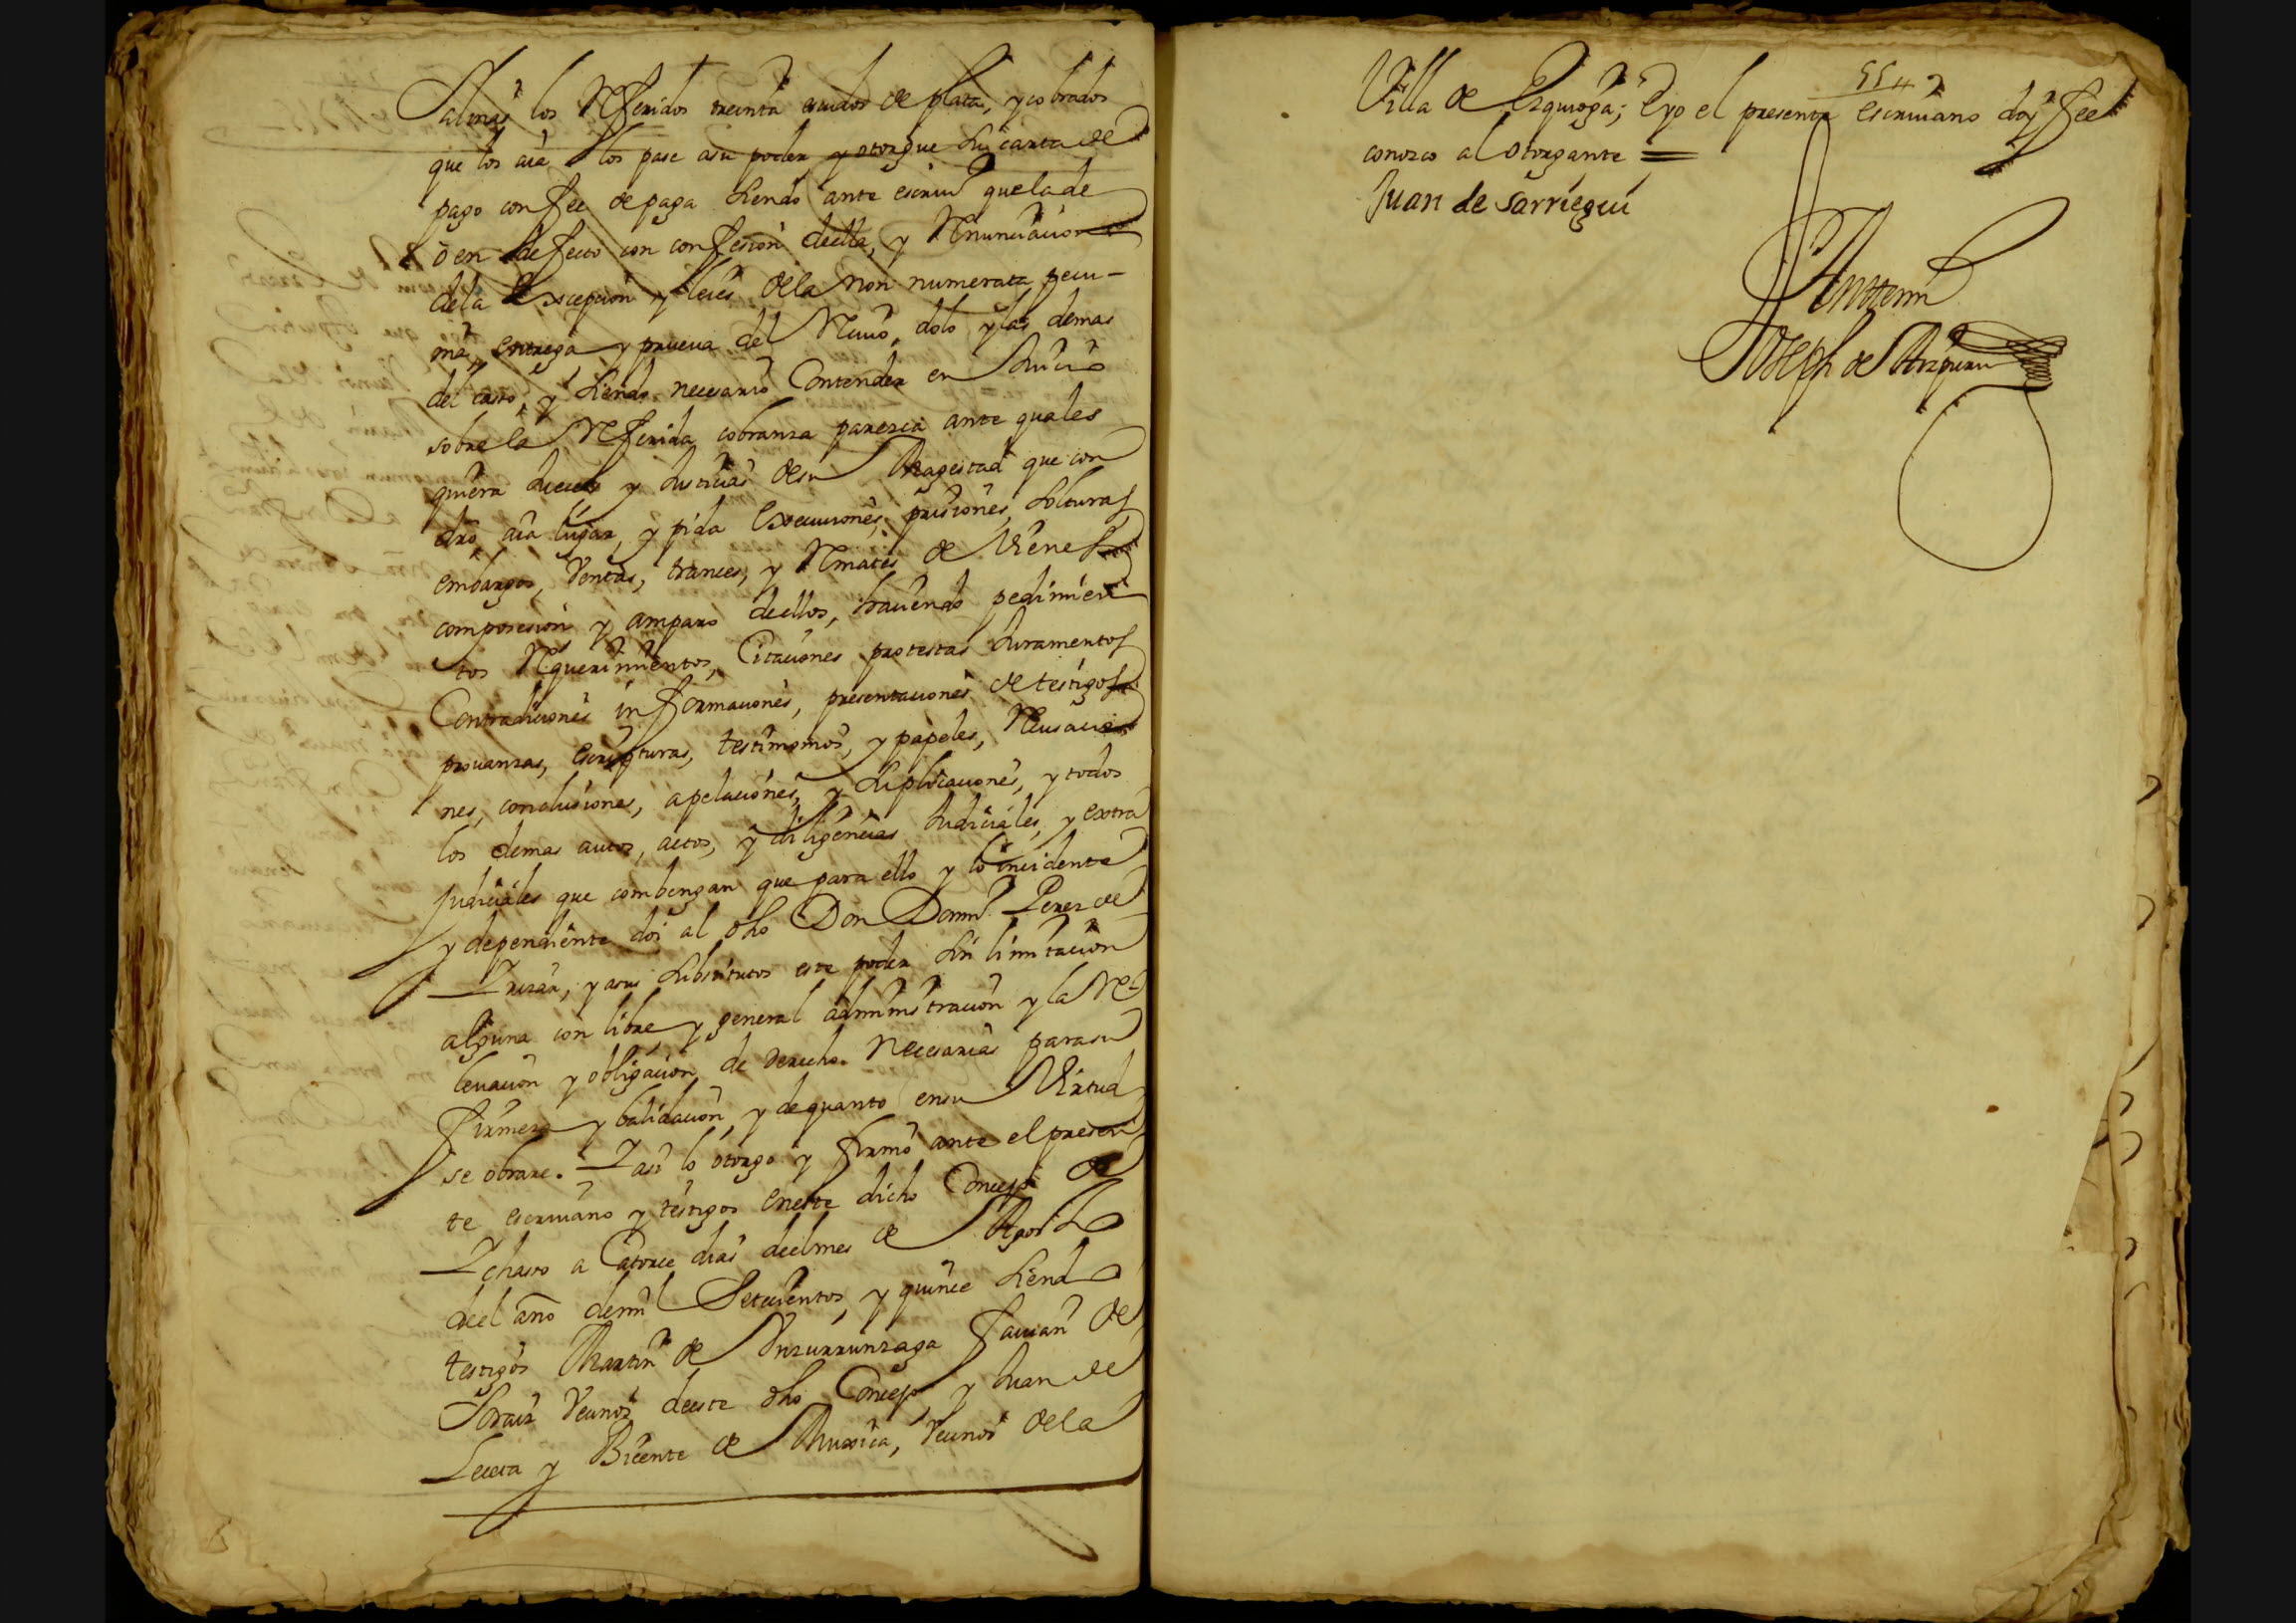 Salinas los Referidos treinta escudos de plata, y cobrados
que los aia los pase asu poder y otorgue su carta de
pago con fee de paga siendo ante escriuº que la de
ō en defecto con confesion de ella, y Renunciacion
de la Excepcion y leies de la non numerata pecu-
nia, entrega y prueua del Reciuo, dolo y las demas
del casso, y siendo necesario Contender en Juicio
sobre la Referida cobranza parezca ante quales
quiera Jueces y Justicias de su Magestad que con
dro aia lugar, y pida Execuciones, prisiones, solturas
embargos, Ventas, trances, y Remates de Vienes
composesion y amparo de ellos, haciendo pedimien
tos Requerimientos, Citaciones protestas Juramentos
Contradiciones informaciones, presentaciones de testigos
prouanzas, escripturas, testimonios, y papeles, Recusacio
nes, conclusiones, apelaciones, y suplicaciones, y todos
los demas autos, actos, y diligencias Judiciales, y extra
Judiciales que combengan que para ello y lo incidente
y dependiente doi al dho Don Domº Perez de
Yrizar, y asus substitutos este poder sin limitacion
alguna con libre y general administracion y la Re-
leuacion y obligacion de derecho necesarias para su
firmeza y balidacion, y de quanto en su Virtud
se obrare. Y asi lo otorgo y firmo ante el presen
te escriuano y testigos en este dicho Concejo de
Ychaso a Catorce dias del mes de Abril
del año de mil Setecientos, y quince siendo
testigos Martin de Ynzurrunzaga Fauian de
Soraiz Vecinos de este dho Concejo y Juan de
Lecea y Bicente de Muxica, Vecinos de la
554
Villa de Ezquioga; E yo el presente escriuano doy fee
conozco al otorgante =
Juan de Sarriegui
Antemi
Joseph de Aizpuru